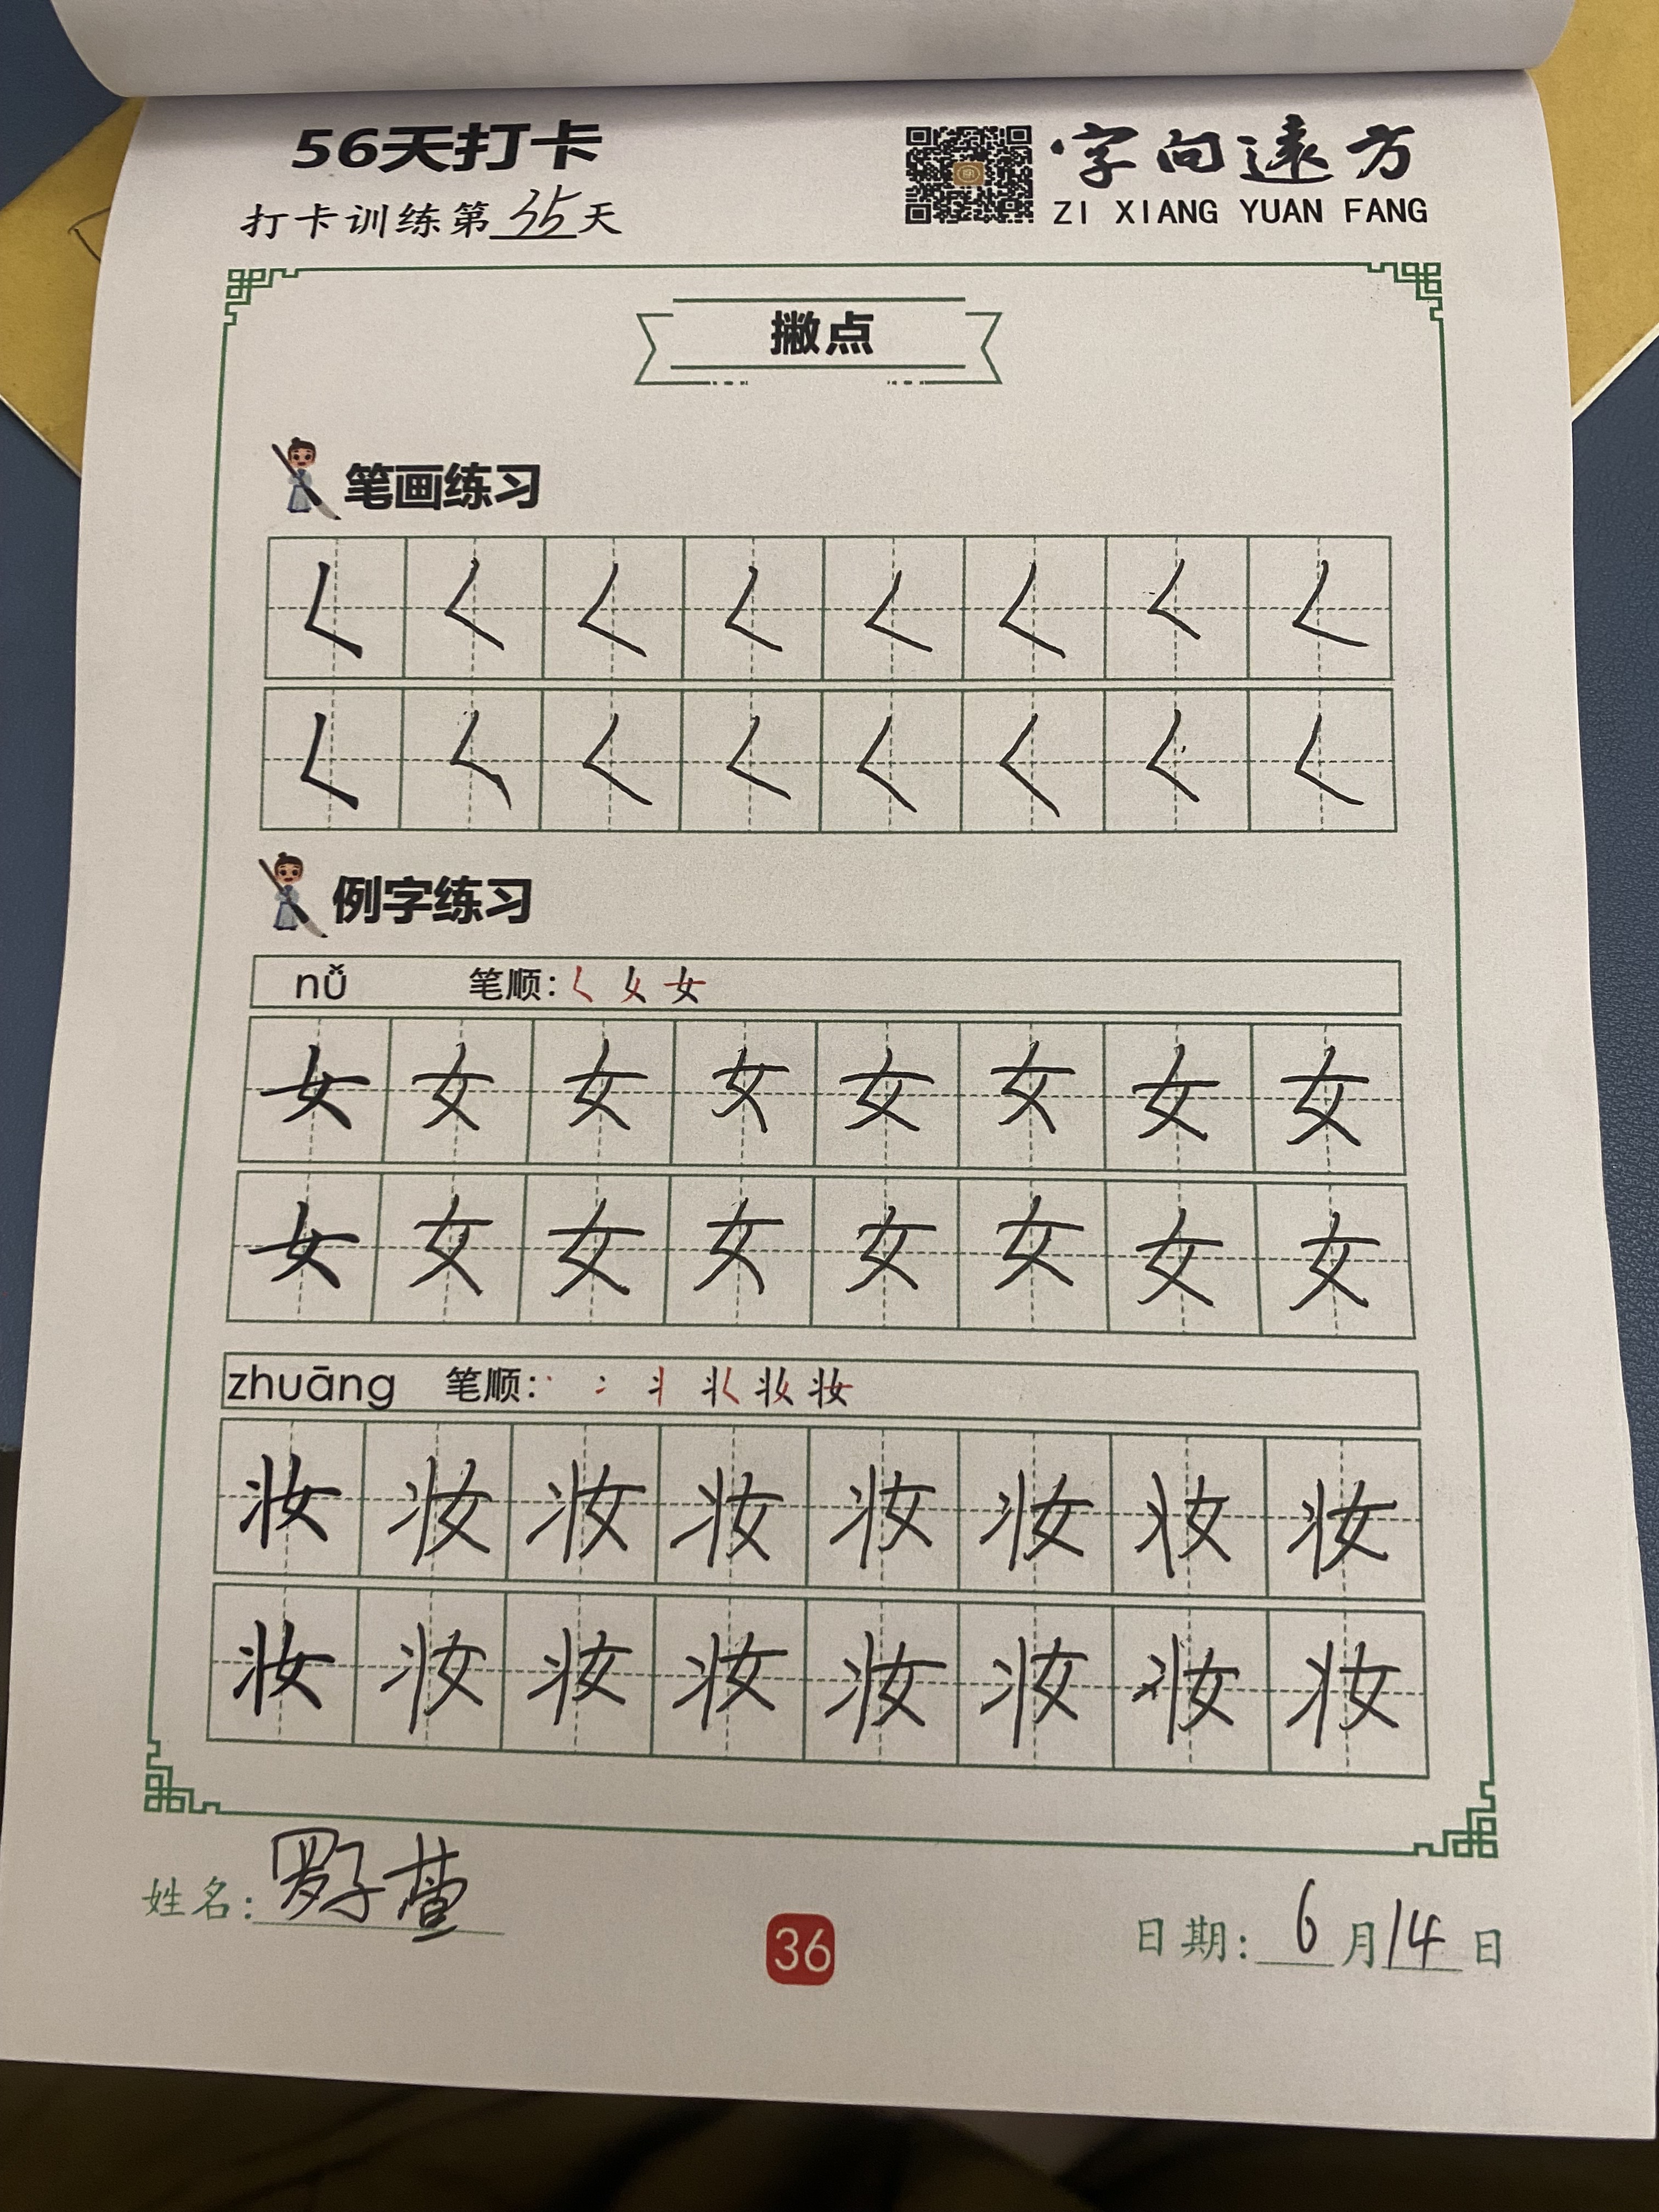 56天打卡
字向远方
打卡训练第35天
ZI XIANG YUAN FANG
撇点
笔画练习
𡿨 𡿨 𡿨 𡿨 𡿨 𡿨 𡿨 𡿨
𡿨 𡿨 𡿨 𡿨 𡿨 𡿨 𡿨 𡿨
例字练习
nǚ 笔顺: 𡿨 女
女 女 女 女 女 女 女 女
女 女 女 女 女 女 女 女
zhuāng 笔顺: 丶 冫 丬 妆
妆 妆 妆 妆 妆 妆 妆 妆
妆 妆 妆 妆 妆 妆 妆 妆
姓名: 罗子萱
36
日期: 6月14日